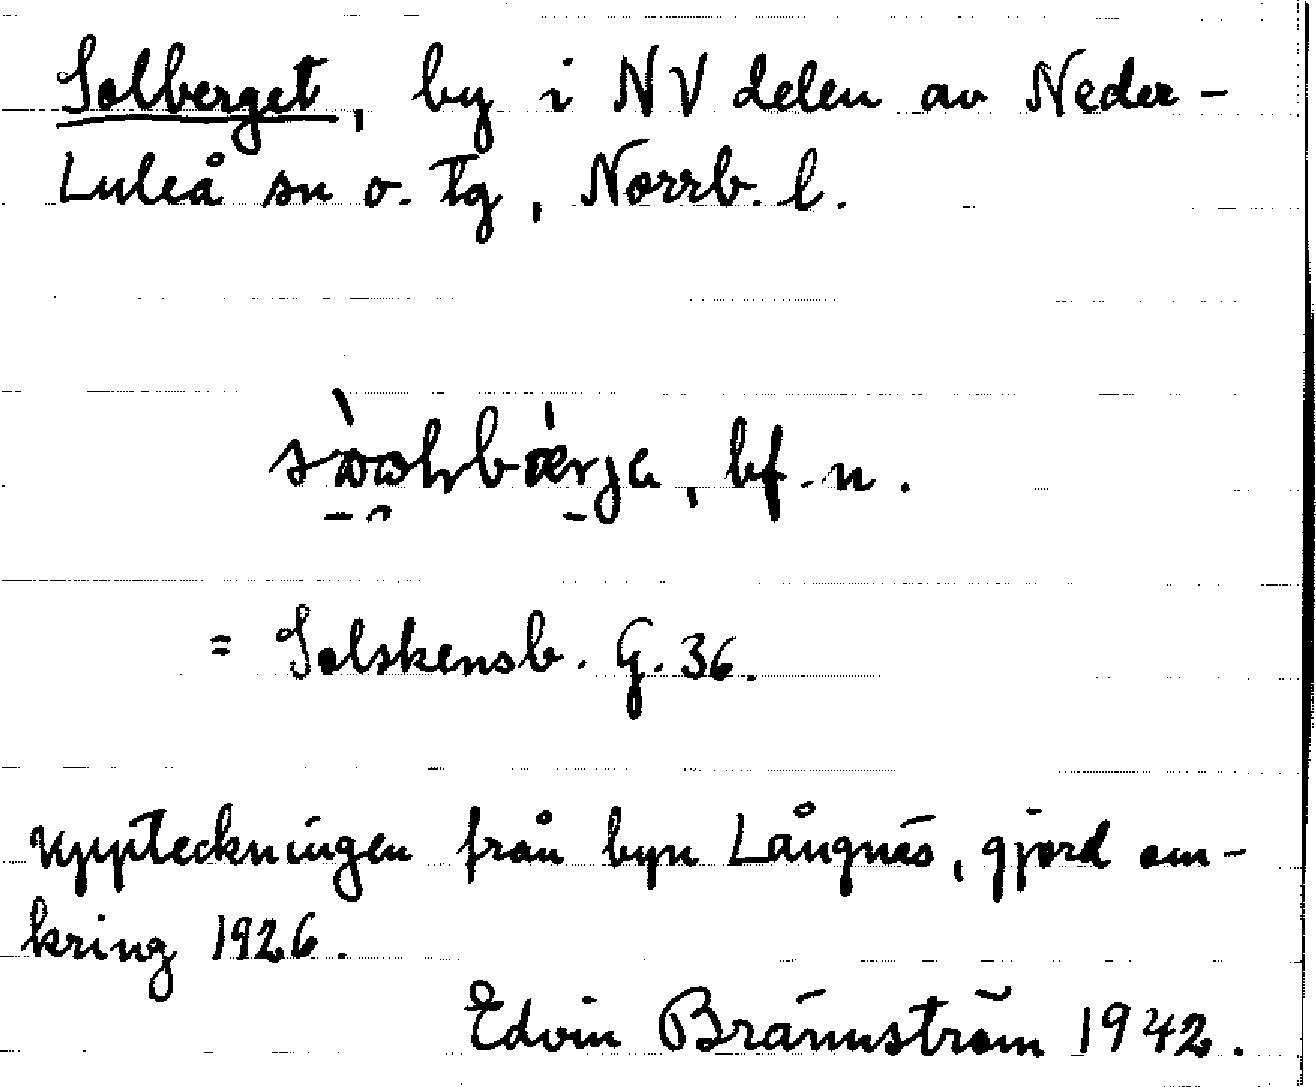 Solberget, by i NV delen av Neder-
Luleå sn o. tg, Norrb. l.
bf. n.
= Solskensb. G. 36.
Uppteckningen från byn Långnäs, gjord om-
kring 1926.
Edvin Brännström 1942.